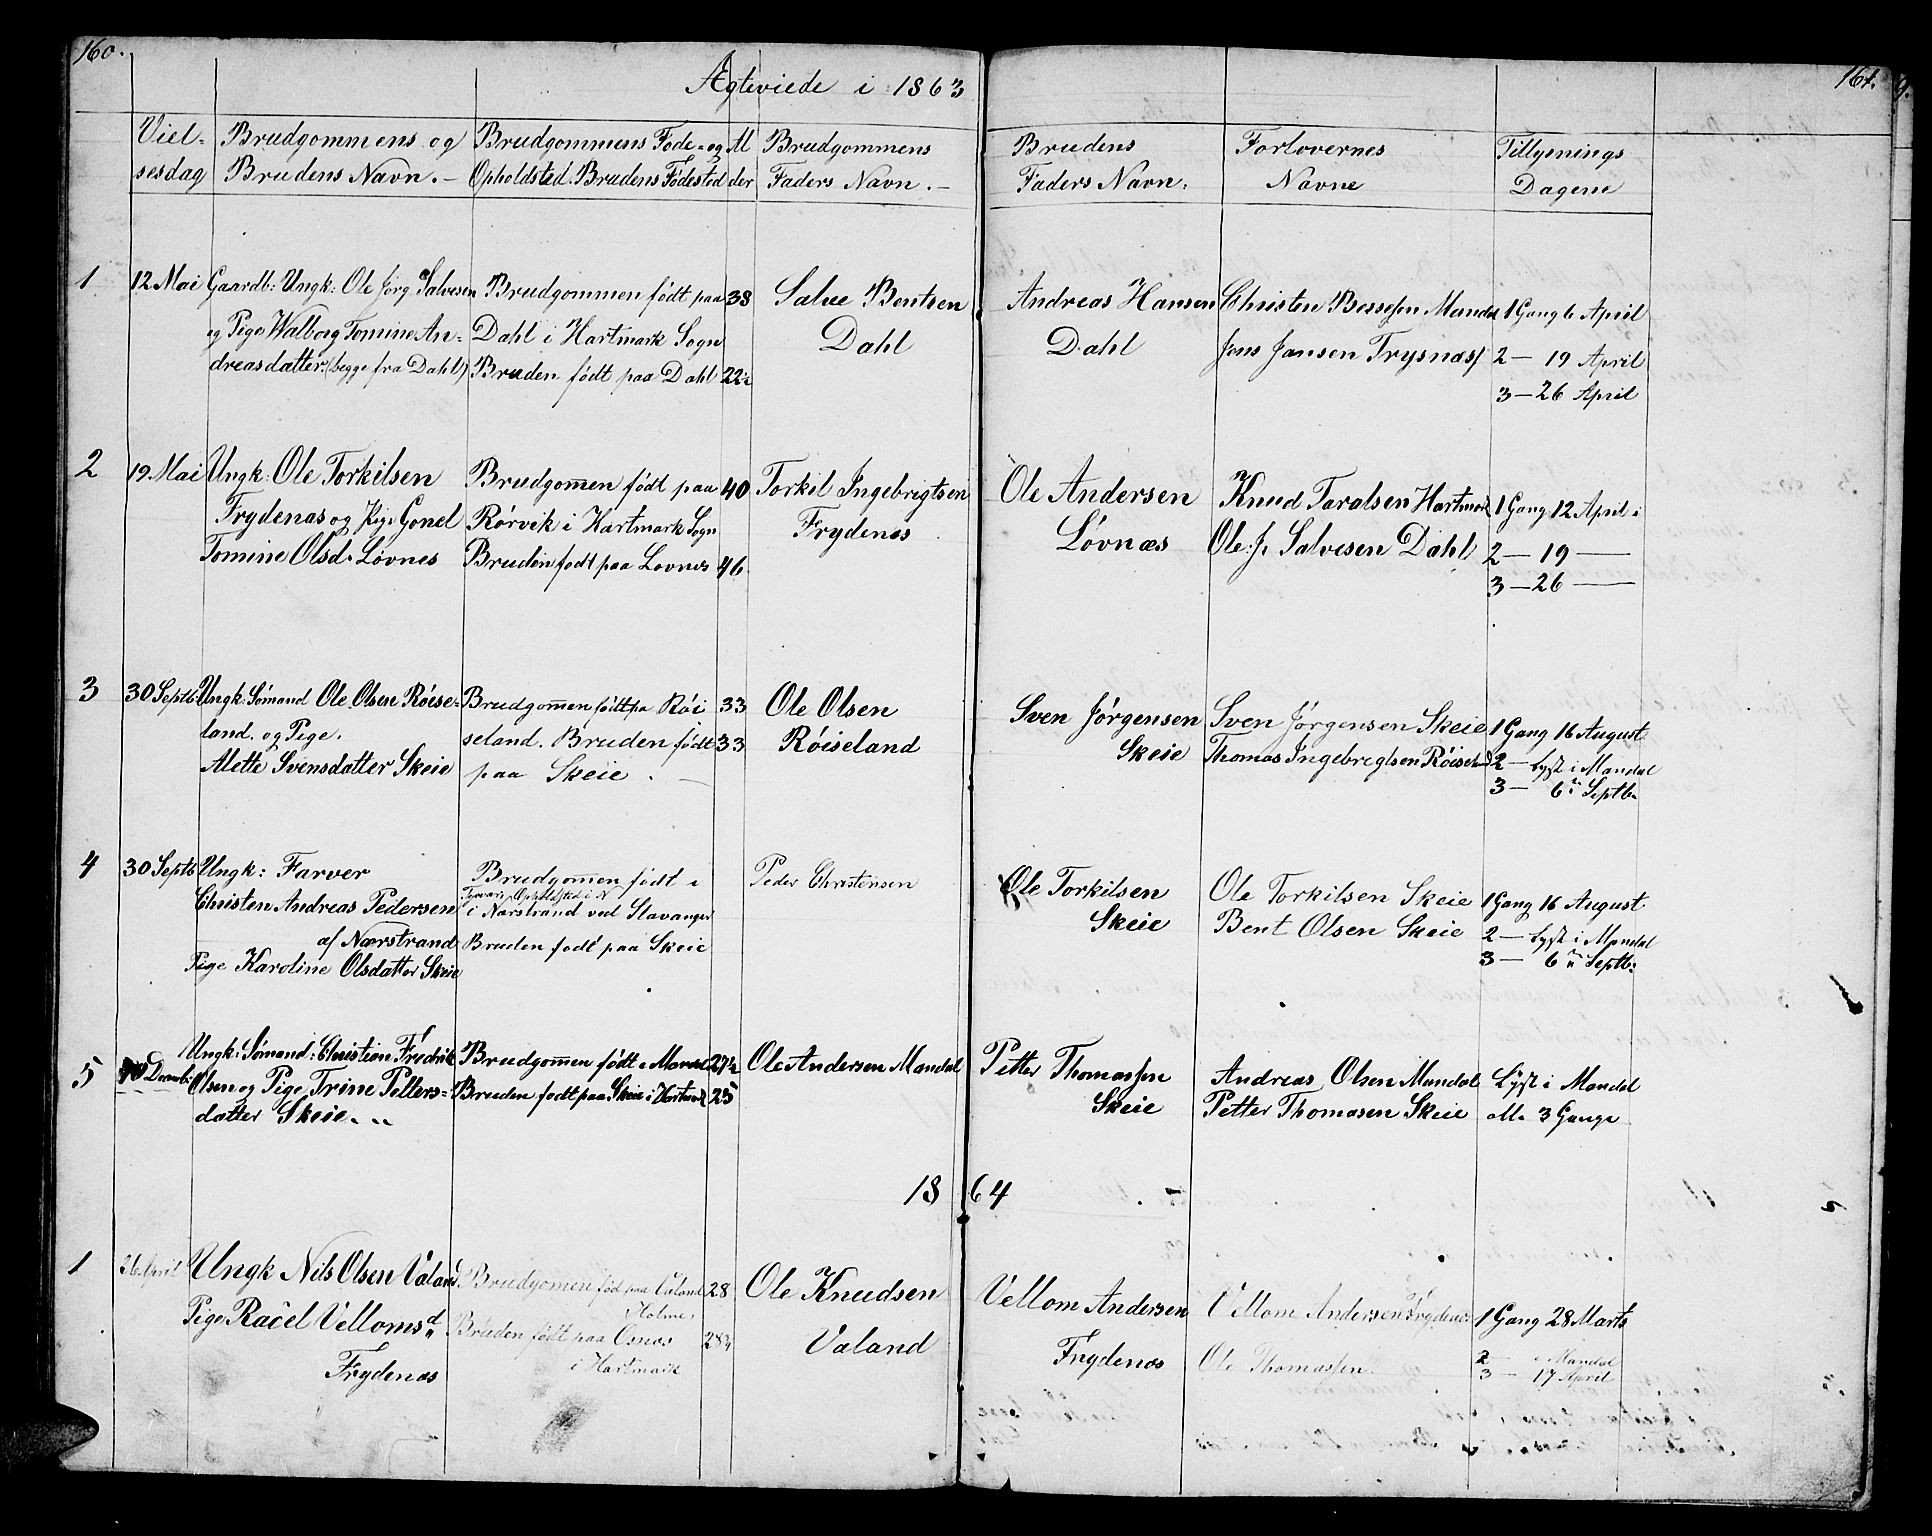 160.
161.
Ægteviede i 1863
Viel-
sesdag
Brudgommens og
Brudens Navn. -
Brudgommens Føde- og
Opholdsted. Brudens Fødested
Al
der
Brudgommens
Faders Navn. -
Brudens
Faders Navn.
Forlovernes
Navne
Tillysnings
Dagene
1
12 Mai
Gaardb: Ungk: Ole Jørg Salvesen
og Pige Walborg Tomine An-
dreasdatter. (begge fra Dahl)
Brudgommen født paa
Dahl i Hartmark Sogn
Bruden født paa Dahl
38
22½
Salve Bentsen
Dahl
Andreas Hansen
Dahl
Christen Bessesen Mandal
Jens Jansen Trysnæs
1 Gang 6 April
2 — 19 April
3 — 26 April
2
19 Mai
Ungk: Ole Torkilsen
Frydenæs og Pige Gonel
Tomine Olsd. Løvnes
Brudgom̄en født paa
Rørvik i Hartmark Sogn
Bruden født paa Lovnes
40
46
Torkil Ingebregtsen
Frydenæs
Ole Andersen
Løvnæs
Knud Taralsen Hartmark
Ole J. Salvesen Dahl
1 Gang 12 April
2 — 19 —
3 — 26 —
3
30 Septb.
Ungk: Sømand Ole Olsen Røise-
land. og Pige.
Alette Svensdatter Skeie
Brudgom̄en født pa Røi
seland. Bruden født
paa Skeie.
33
33
Ole Olsen
Røiseland
Sven Jørgensen
Skeie
Sven Jørgensen Skeie
Thomas Ingebregtsen Røiseland
1 Gang 16 August
2 — Lyst i Mandal
3 — 6te Septb.
4
30 Septb
Ungk: Farver
Christen Andreas Pedersen
af Nærstrand
Pige Karoline Olsdatter Skeie
Brudgom̄en født i
Opholdsted i N
i Nærstrand ved Stavanger
Bruden født paa Skeie
Peder Christensen
Ole Torkilsen
Skeie
Ole Torkilsen Skeie
Bent Olsen Skeie
1 Gang 16 August
2 — Lyst i Mandal
3 — 6te Septb:
5
Decemb.
Ungk: Sømand: Christian Fredrik
Olsen og Pige Trine Petters-
datter Skeie.
Brudgom̄en født i Mandal
Bruden født paa Skeie i Hartmark
27½
25
Ole Andersen Mandal
Petter Thomassen
Skeie
Andreas Olsen Mandal
Petter Thomasen Skeie
Lyst i Mandal
alle 3 Gange
1864
1
26 April
Ungk Nils Olsen Valand
Pige Racel Velloms d
Frydenæs
Brudgomen fød paa Valand
Holme
Bruden født paa Osnes
i Hartmark
28
28¾
Ole Knudsen
Valand
Vellom Andersen
Frydenæs
Vellom Andersen Frydenæs
Ole Thomassen
1 Gang 28 Marts
2 — i Mandal
3 — 17 April